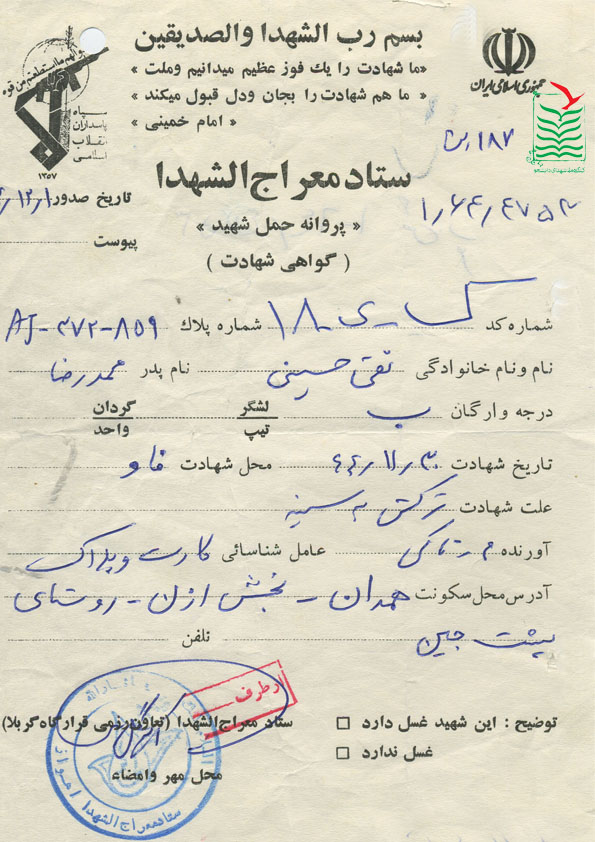 بسم رب الشهدا والصدیقین
«ما شهادت را یك فوز عظیم میدانیم وملت
ما هم شهادت را بجان ودل قبول میکند»
« امام خمینی »
جمهوری اسلامی ایران
سپاه
پاسداران
انقلاب
اسلامی
۱۳۵۷
۱۸۷
ستاد معراج الشهدا
تاریخ صدور
« پروانه حمل شهید »
پیوست
( گواهی شهادت )
شماره کد ۱۸ شماره پلاك AJ-۳۷۲-۸۵۹
نام ونام خانوادگی تقی حسینی نام پدر محمدرضا
درجه وارگان ب لشگر تیپ گردان واحد
تاریخ شهادت ۶۴٫۱۱٫۳۰ محل شهادت فاو
علت شهادت ترکش به سینه
آورنده عامل شناسائی کارت و پلاک
آدرس محل سکونت همدان - بخش ازن - روستای
پشت جین تلفن
از طرف
توضیح : این شهید غسل دارد □ ستاد معراج الشهدا (تعاون رزمی قرارگاه کربلا)
غسل ندارد □
محل مهر وامضاء
ستاد معراج الشهدا اهواز